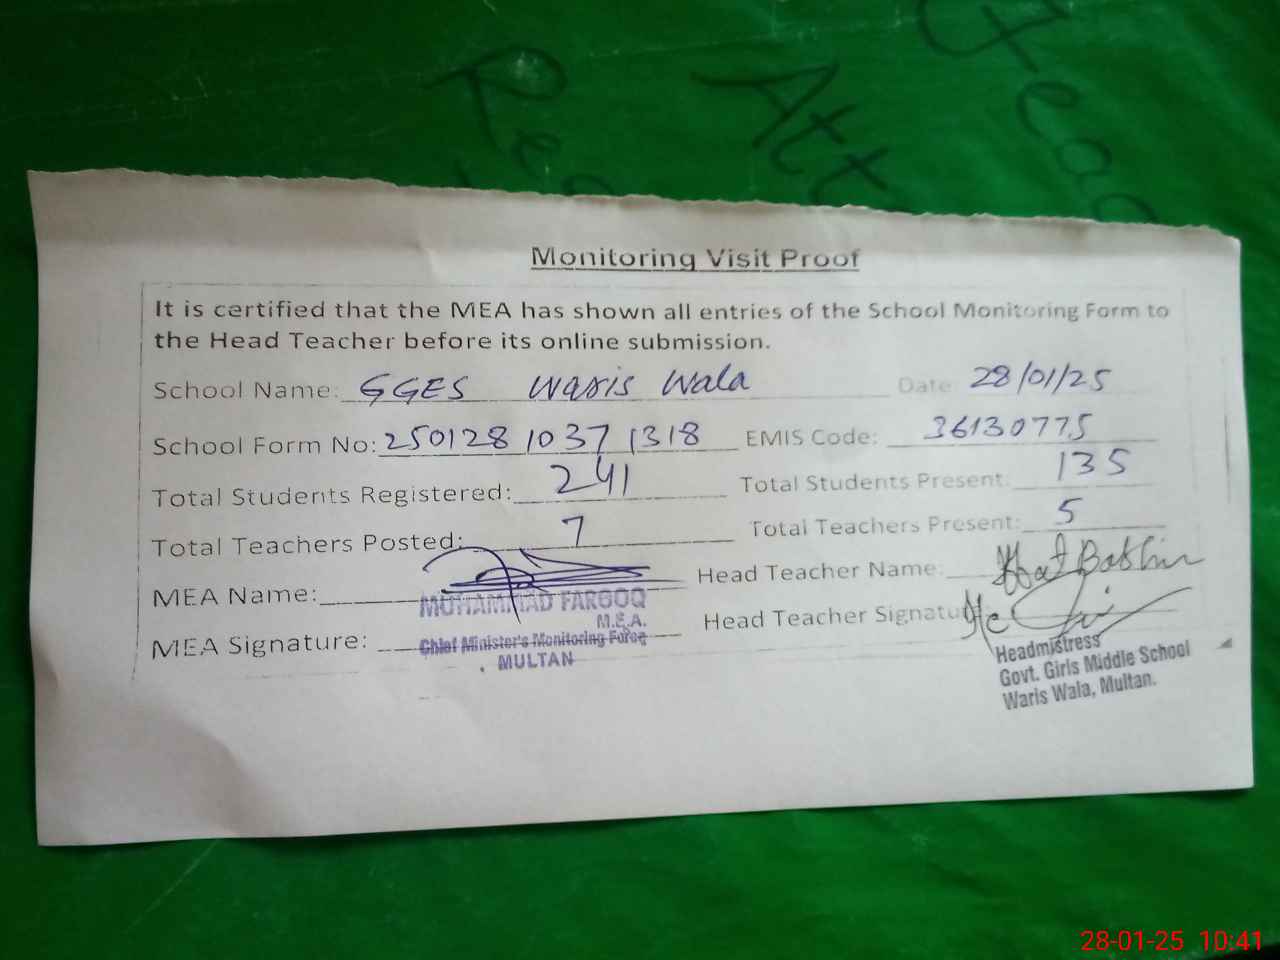 Re
Att
Monitoring Visit Proof
It is certified that the MEA has shown all entries of the School Monitoring Form to
the Head Teacher before its online submission.
School Name: GGES Waris Wala Date 28/01/25
School Form No: 250128 1037 1318 EMIS Code: 36130775
Total Students Registered: 241 Total Students Present: 135
Total Teachers Posted: 7 Total Teachers Present: 5
MEA Name: Head Teacher Name:
MUHAMMAD FAROOQ
M.E.A.
Head Teacher Signature:
MEA Signature: Chief Minister's Monitoring Force
MULTAN
Headmistress
Govt. Girls Middle School
Waris Wala, Multan.
28-01-25 10:41